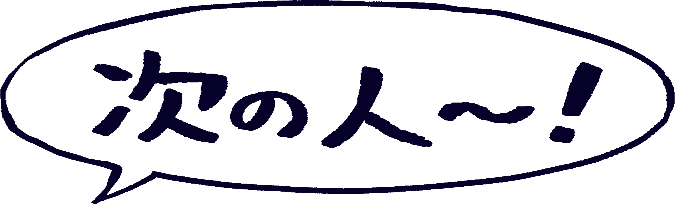 次の人〜!